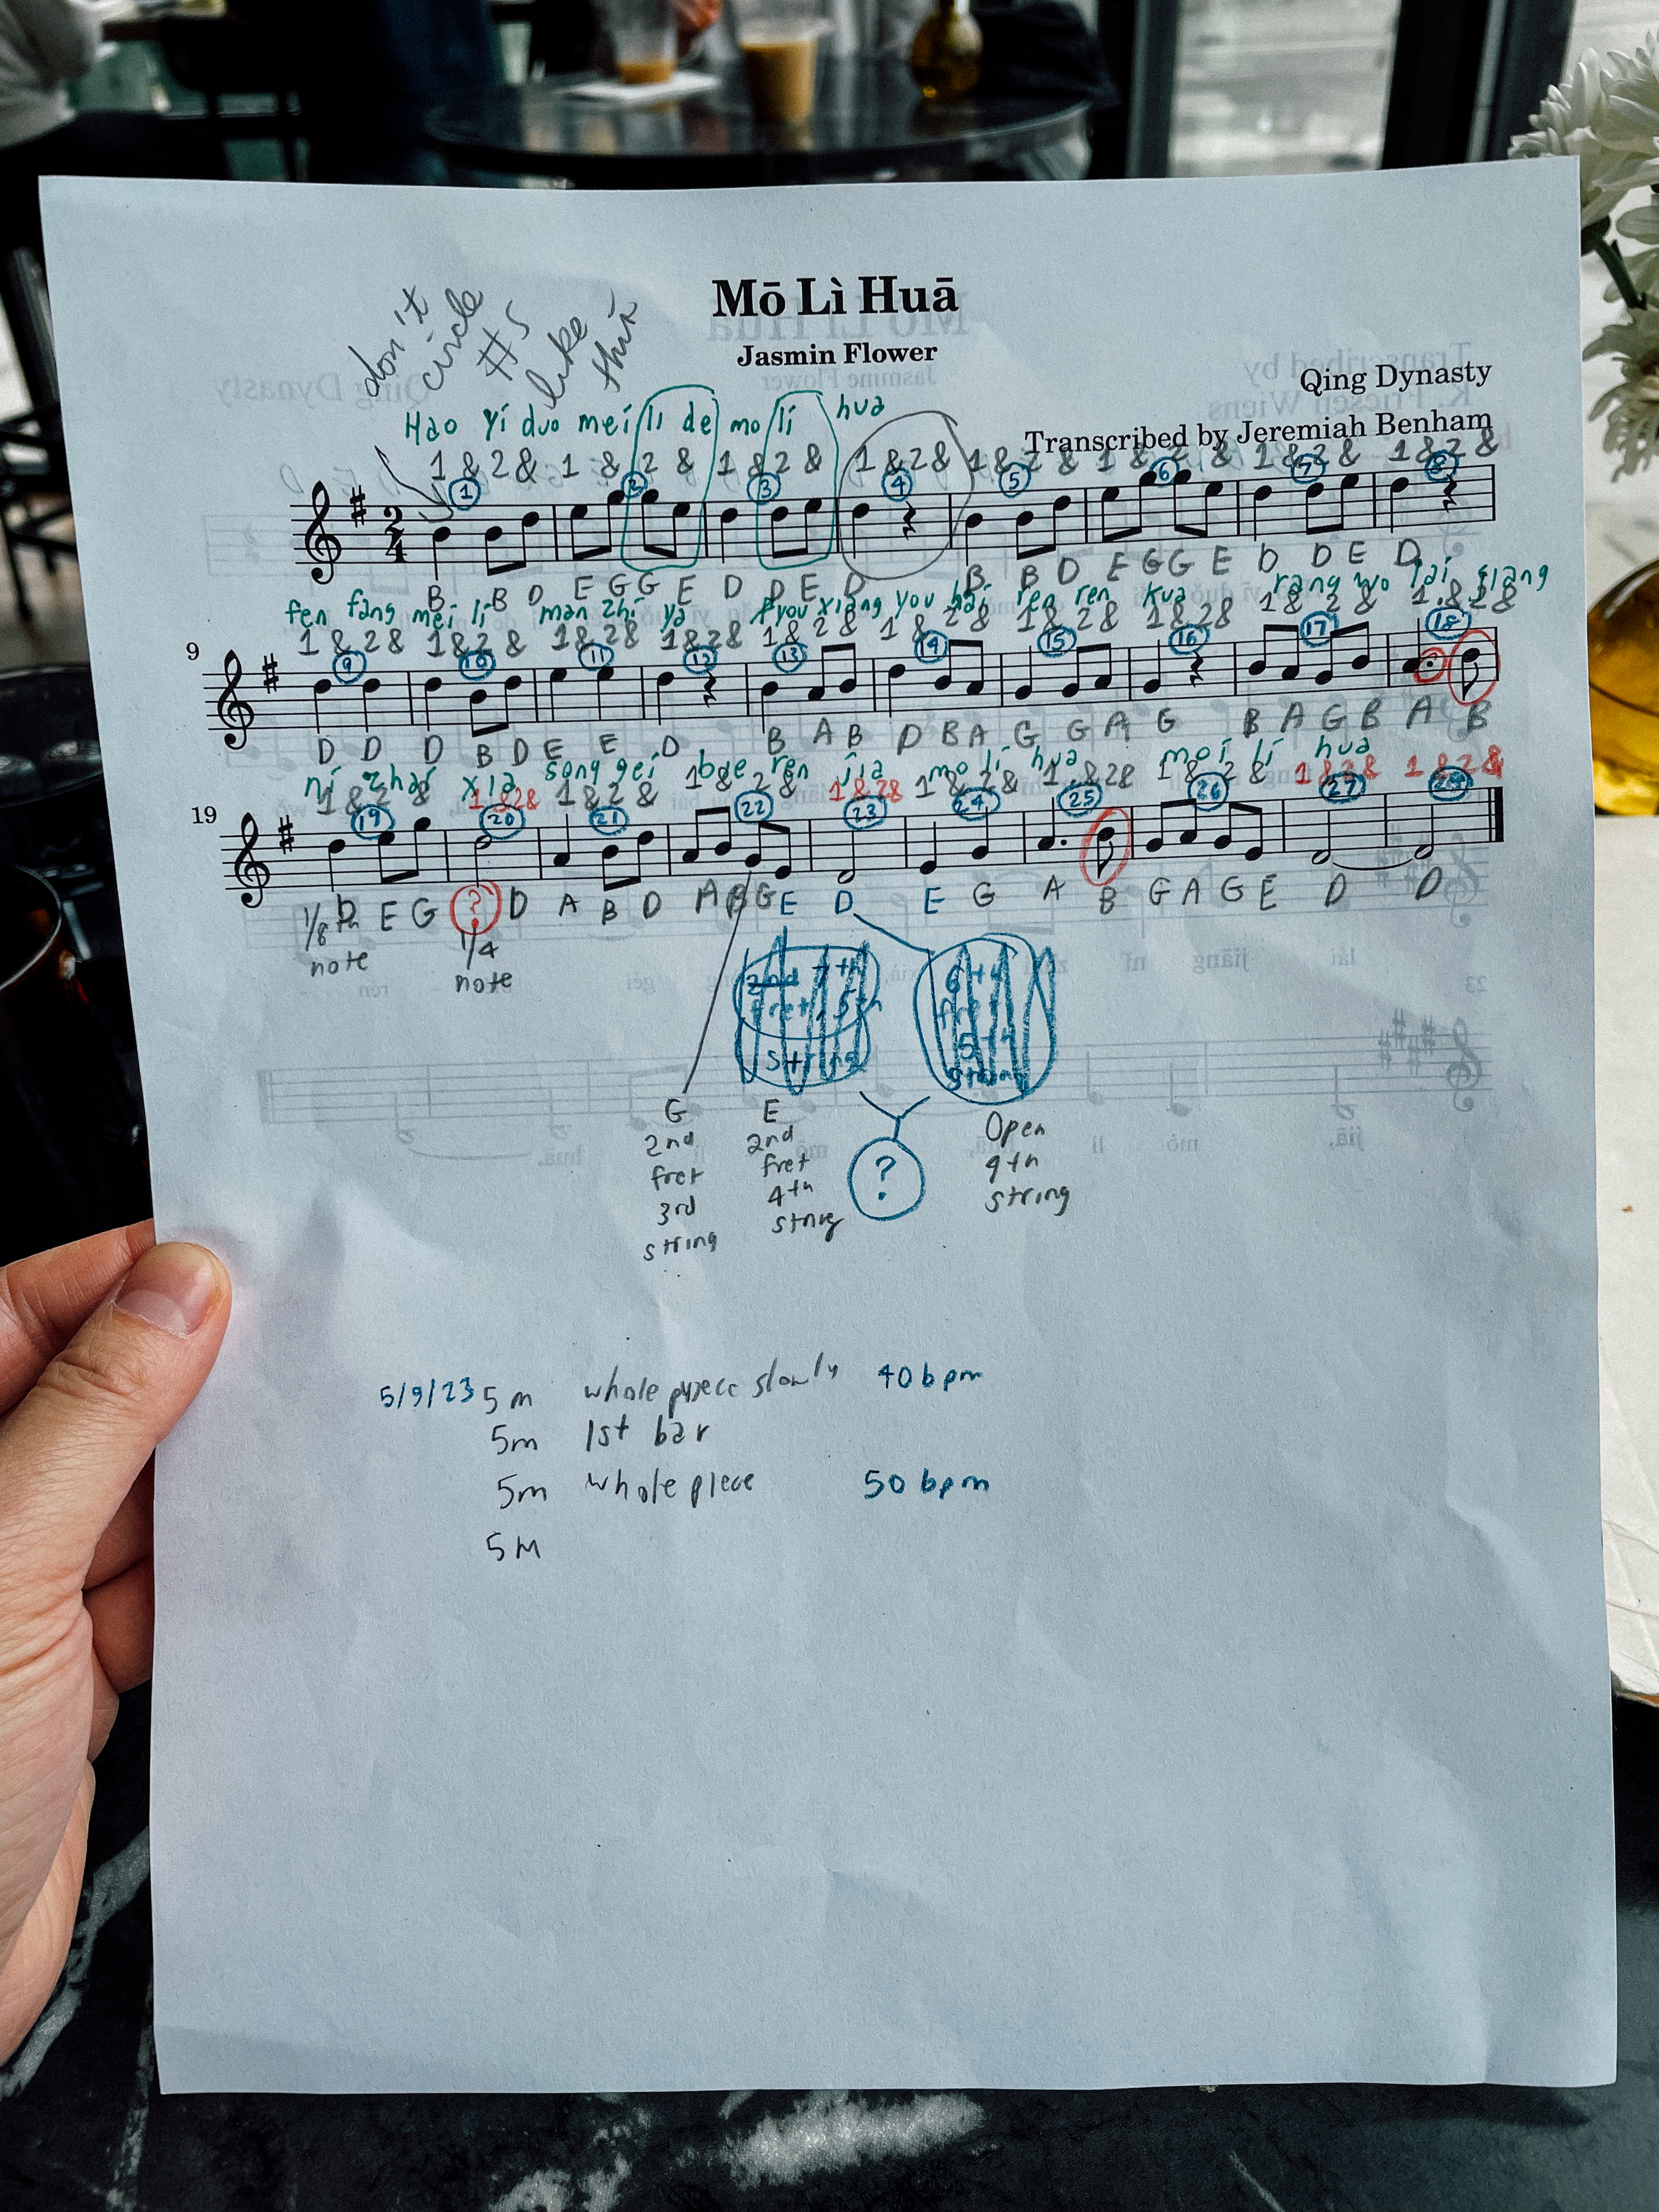 don't
circle
#s
like
this
Mō Lì Huā
Jasmin Flower
Qing Dynasty
Transcribed by Jeremiah Benham
Hao yi duo mei li de mo li hua
1 & 2 & 1 & 2 & 1 & 2 & 1 & 2 & 1 & 2 & 1 & 2 & 1 & 2 & 1 & 2 &
1 2 3 4 5 6 7 8
2
4
B B D E G G E D D E D B B D E G G E D D E D
fen fang mei li man zhi ya you xiang you bai ren ren kua rang wo lai giang
1 & 2 & 1 & 2 & 1 & 2 & 1 & 2 & 1 & 2 & 1 & 2 & 1 & 2 & 1 & 2 & 1 & 2 & 1 & 2 &
9
9 10 11 12 13 14 15 16 17 18
D D D B D E E D B A B D B A G G A G B A G B A B
ni zhai xia song gei bae ren jia mo li hua moi li hua
1 & 2 & 1 & 2 & 1 & 2 & 1 & 2 & 1 & 2 & 1 & 2 & 1 & 2 & 1 & 2 & 1 & 2 & 1 & 2 &
19
19 20 21 22 23 24 25 26 27
D E G ? D A B D A B G E D E G A B G A G E D D
1/8th
note
1/4
note
2nd 7th
fret, 5th
string
5th
string
G
2nd
fret
3rd
string
E
2nd
fret
4th
string
?
Open
4th
string
5/9/23 5m whole piece slowly 40 bpm
5m 1st bar
5m whole piece 50 bpm
5m